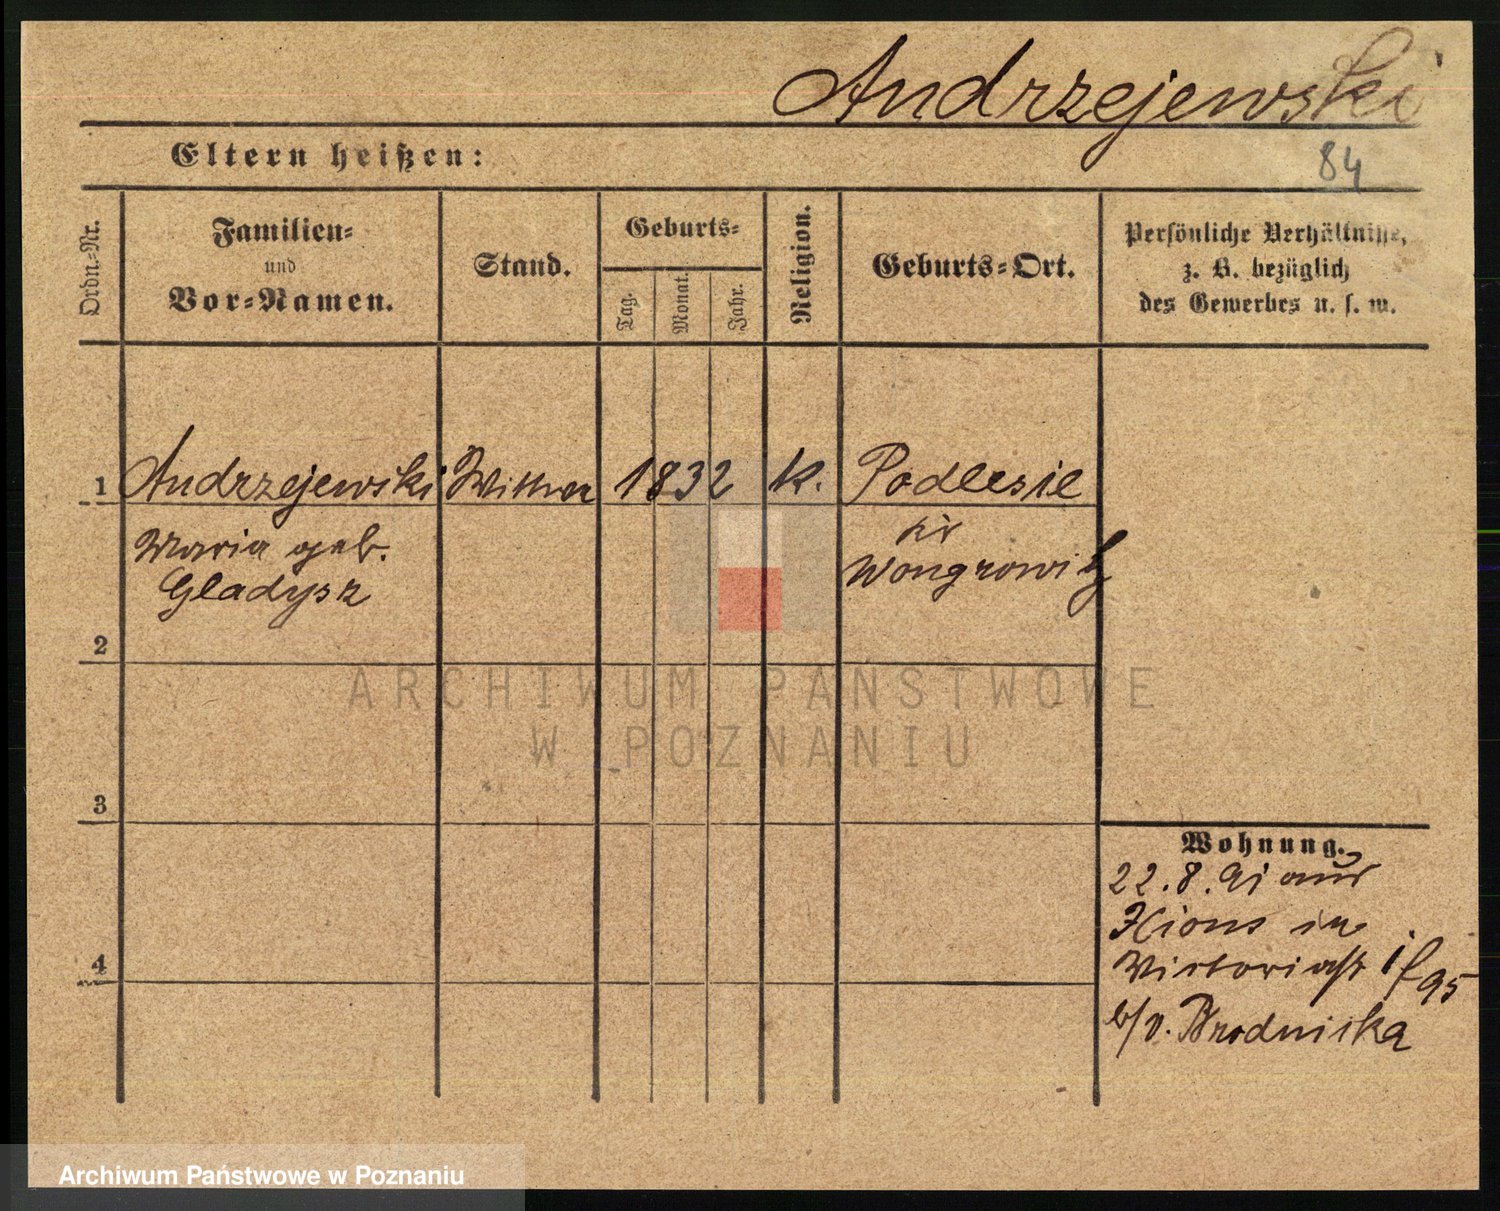 Andrzejewski
Eltern heißen:
84
Ordn.-Nr.
Familien-
und
Vor-Namen.
Stand.
Geburts-
Tag.
Monat.
Jahr.
Religion.
Geburts-Ort.
Persönliche Verhältnisse,
z. B. bezüglich
des Gewerbes u. s. w.
1 Andrzejewski Wittwe 1832 k. Podlesie
Maria geb.
Gladysz
Wongrowitz
2
ARCHIWUM PAŃSTWOWE
W POZNANIU
3
Wohnung.
22.8.91 aus
Xions in
Victoriastr
95
4
b/v. Brodnicka
Archiwum Państwowe w Poznaniu